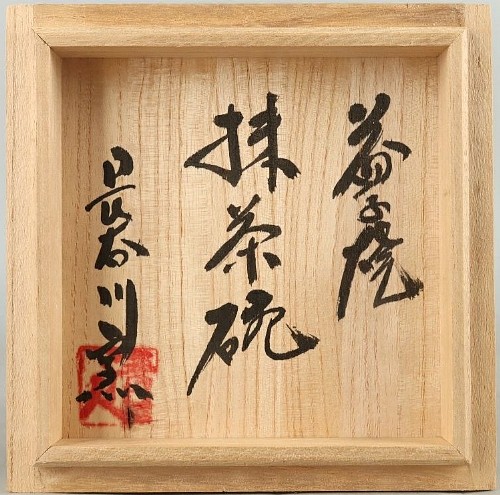 益子焼
抹茶碗
長谷川窯